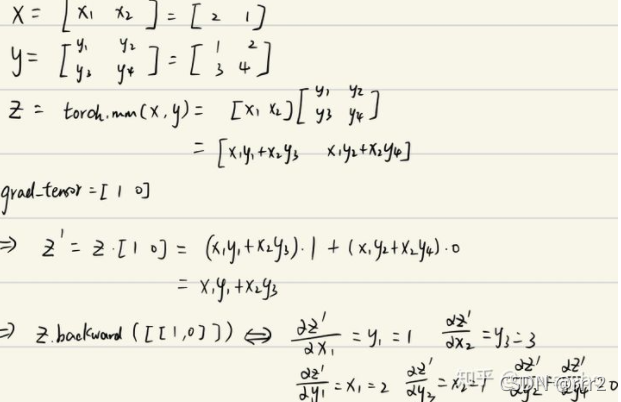 X = [ x₁ x₂ ] = [ 2 1 ]
y = [ y₁ y₂ ] = [ 1 2 ]
[ y₃ y₄ ] [ 3 4 ]
Z = torch.mm(x,y) = [x₁ x₂] [ y₁ y₂ ]
[ y₃ y₄ ]
= [x₁y₁+x₂y₃ x₁y₂+x₂y₄]
grad_tensor = [ 1 0 ]
⇒ Z' = Z·[1 0] = (x₁y₁+x₂y₃)·1 + (x₁y₂+x₂y₄)·0
= x₁y₁+x₂y₃
⇒ Z.backward([[1,0]]) ⇔ ∂Z'/∂x₁ = y₁ = 1 ∂Z'/∂x₂ = y₃ = 3
∂Z'/∂y₁ = x₁ = 2 ∂Z'/∂y₃ = x₂ = 1 ∂Z'/∂y₂ = ∂Z'/∂y₄ = 0
知乎